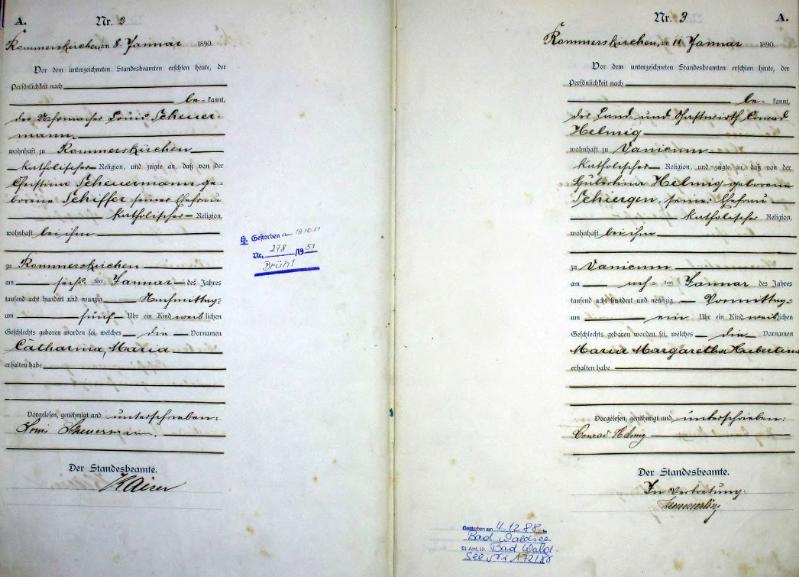 A. Nr. 2
Rommerskirchen, am 8. Januar 1890.
Vor dem unterzeichneten Standesbeamten erschien heute, der
Persönlichkeit nach
be- kannt,
der Louis Scheuer-
mann.
wohnhaft zu Rommerskirchen
katholischer Religion, und zeigte an, daß von der
Christina Scheuermann ge-
borene Schiffer seiner Ehefrau
katholischer Religion,
wohnhaft bei ihm
zu Rommerskirchen
am ten Januar des Jahres
tausend acht hundert und neunzig Nachmittags
um fünf Uhr ein Kind weiblichen
Geschlechts geboren worden sei, welches die Vornamen
Catharina, Maria
erhalten habe
Vorgelesen, genehmigt und unterschrieben:
Louis Scheuermann.
Der Standesbeamte.
Gestorben
Nr. 278 /19 51
Brühl
Nr. 3 A.
Rommerskirchen, am 11. Januar 1890.
Vor dem unterzeichneten Standesbeamten erschien heute, der
Persönlichkeit nach
be- kannt,
der Land und Gastwirth Conrad
Helmig
wohnhaft zu Vanicum
katholischer Religion, und zeigte an, daß von der
Helmig geborene
seiner Ehefrau
katholischer Religion,
wohnhaft bei ihm
zu Vanicum
am ten Januar des Jahres
tausend acht hundert und neunzig Vormittags
um ein Uhr ein Kind weiblichen
Geschlechts geboren worden sei, welches die Vornamen
Maria Margaretha Hubertina
erhalten habe
Vorgelesen, genehmigt und unterschrieben:
Conrad Helmig
Der Standesbeamte.
In Vertretung:
Gestorben am 4.12.88 in
Bad Waldsee
Bad Wald-
see Nr. 172/88